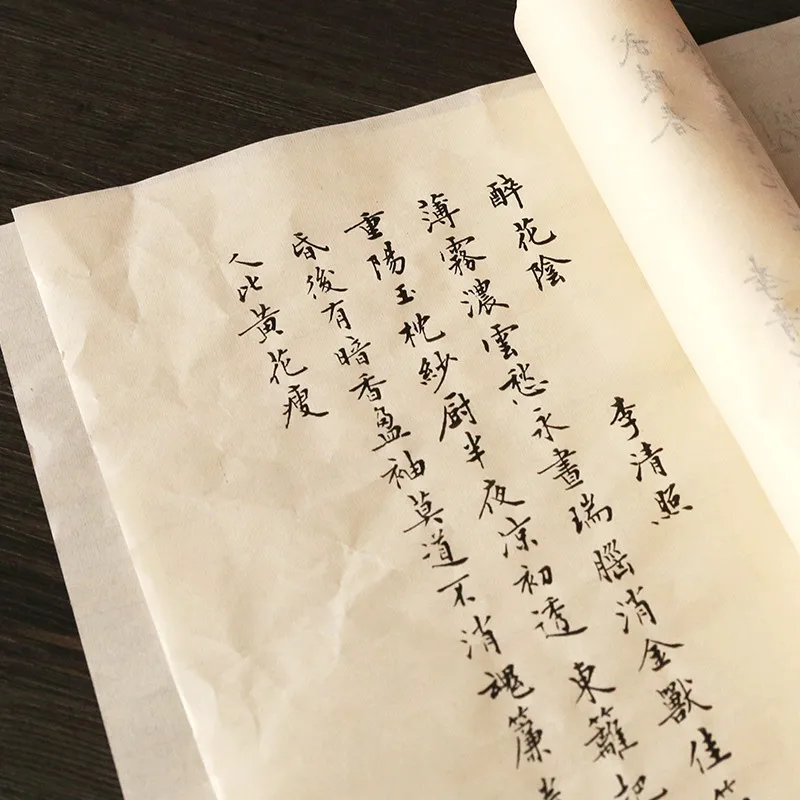 醉花陰
李清照
薄霧濃雲愁永晝瑞腦消金獸佳
重陽玉枕紗厨半夜凉初透東籬把
昏後有暗香盈袖莫道不消魂簾
人比黃花瘦